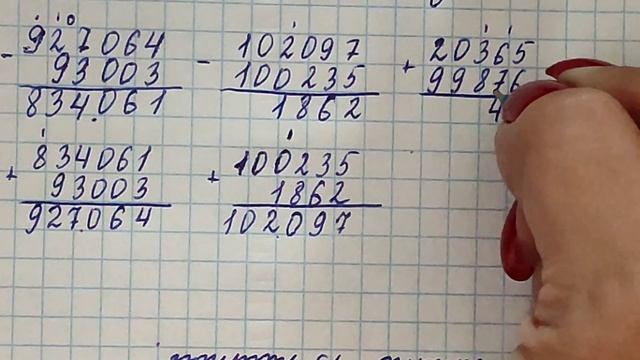 - 927064
93003
834061
- 102097
100235
1862
+ 20365
99876
4
+ 834061
93003
927064
+ 100235
1862
102097